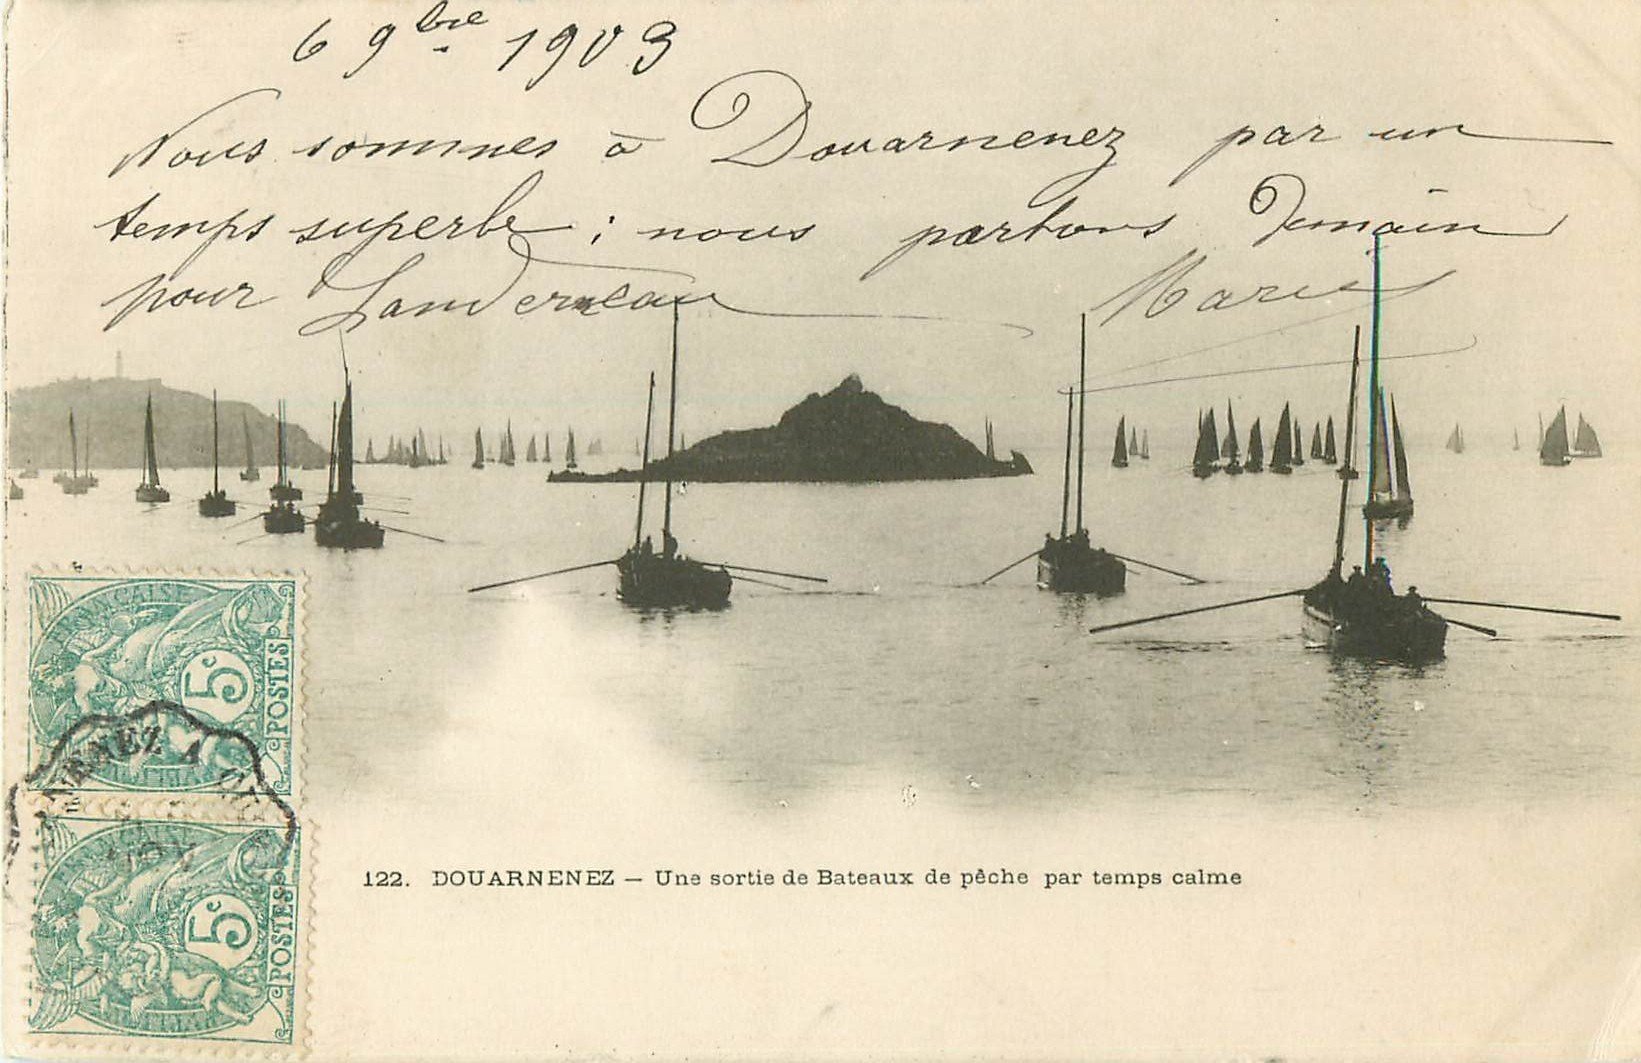 6 9bre 1903
Nous sommes à Douarnenez par un
temps superbe ; nous partons demain
pour Landerneau
FRANÇAISE
5c
POSTES
NENEZ A
NOV
5c
POSTES
122. DOUARNENEZ — Une sortie de Bateaux de pêche par temps calme